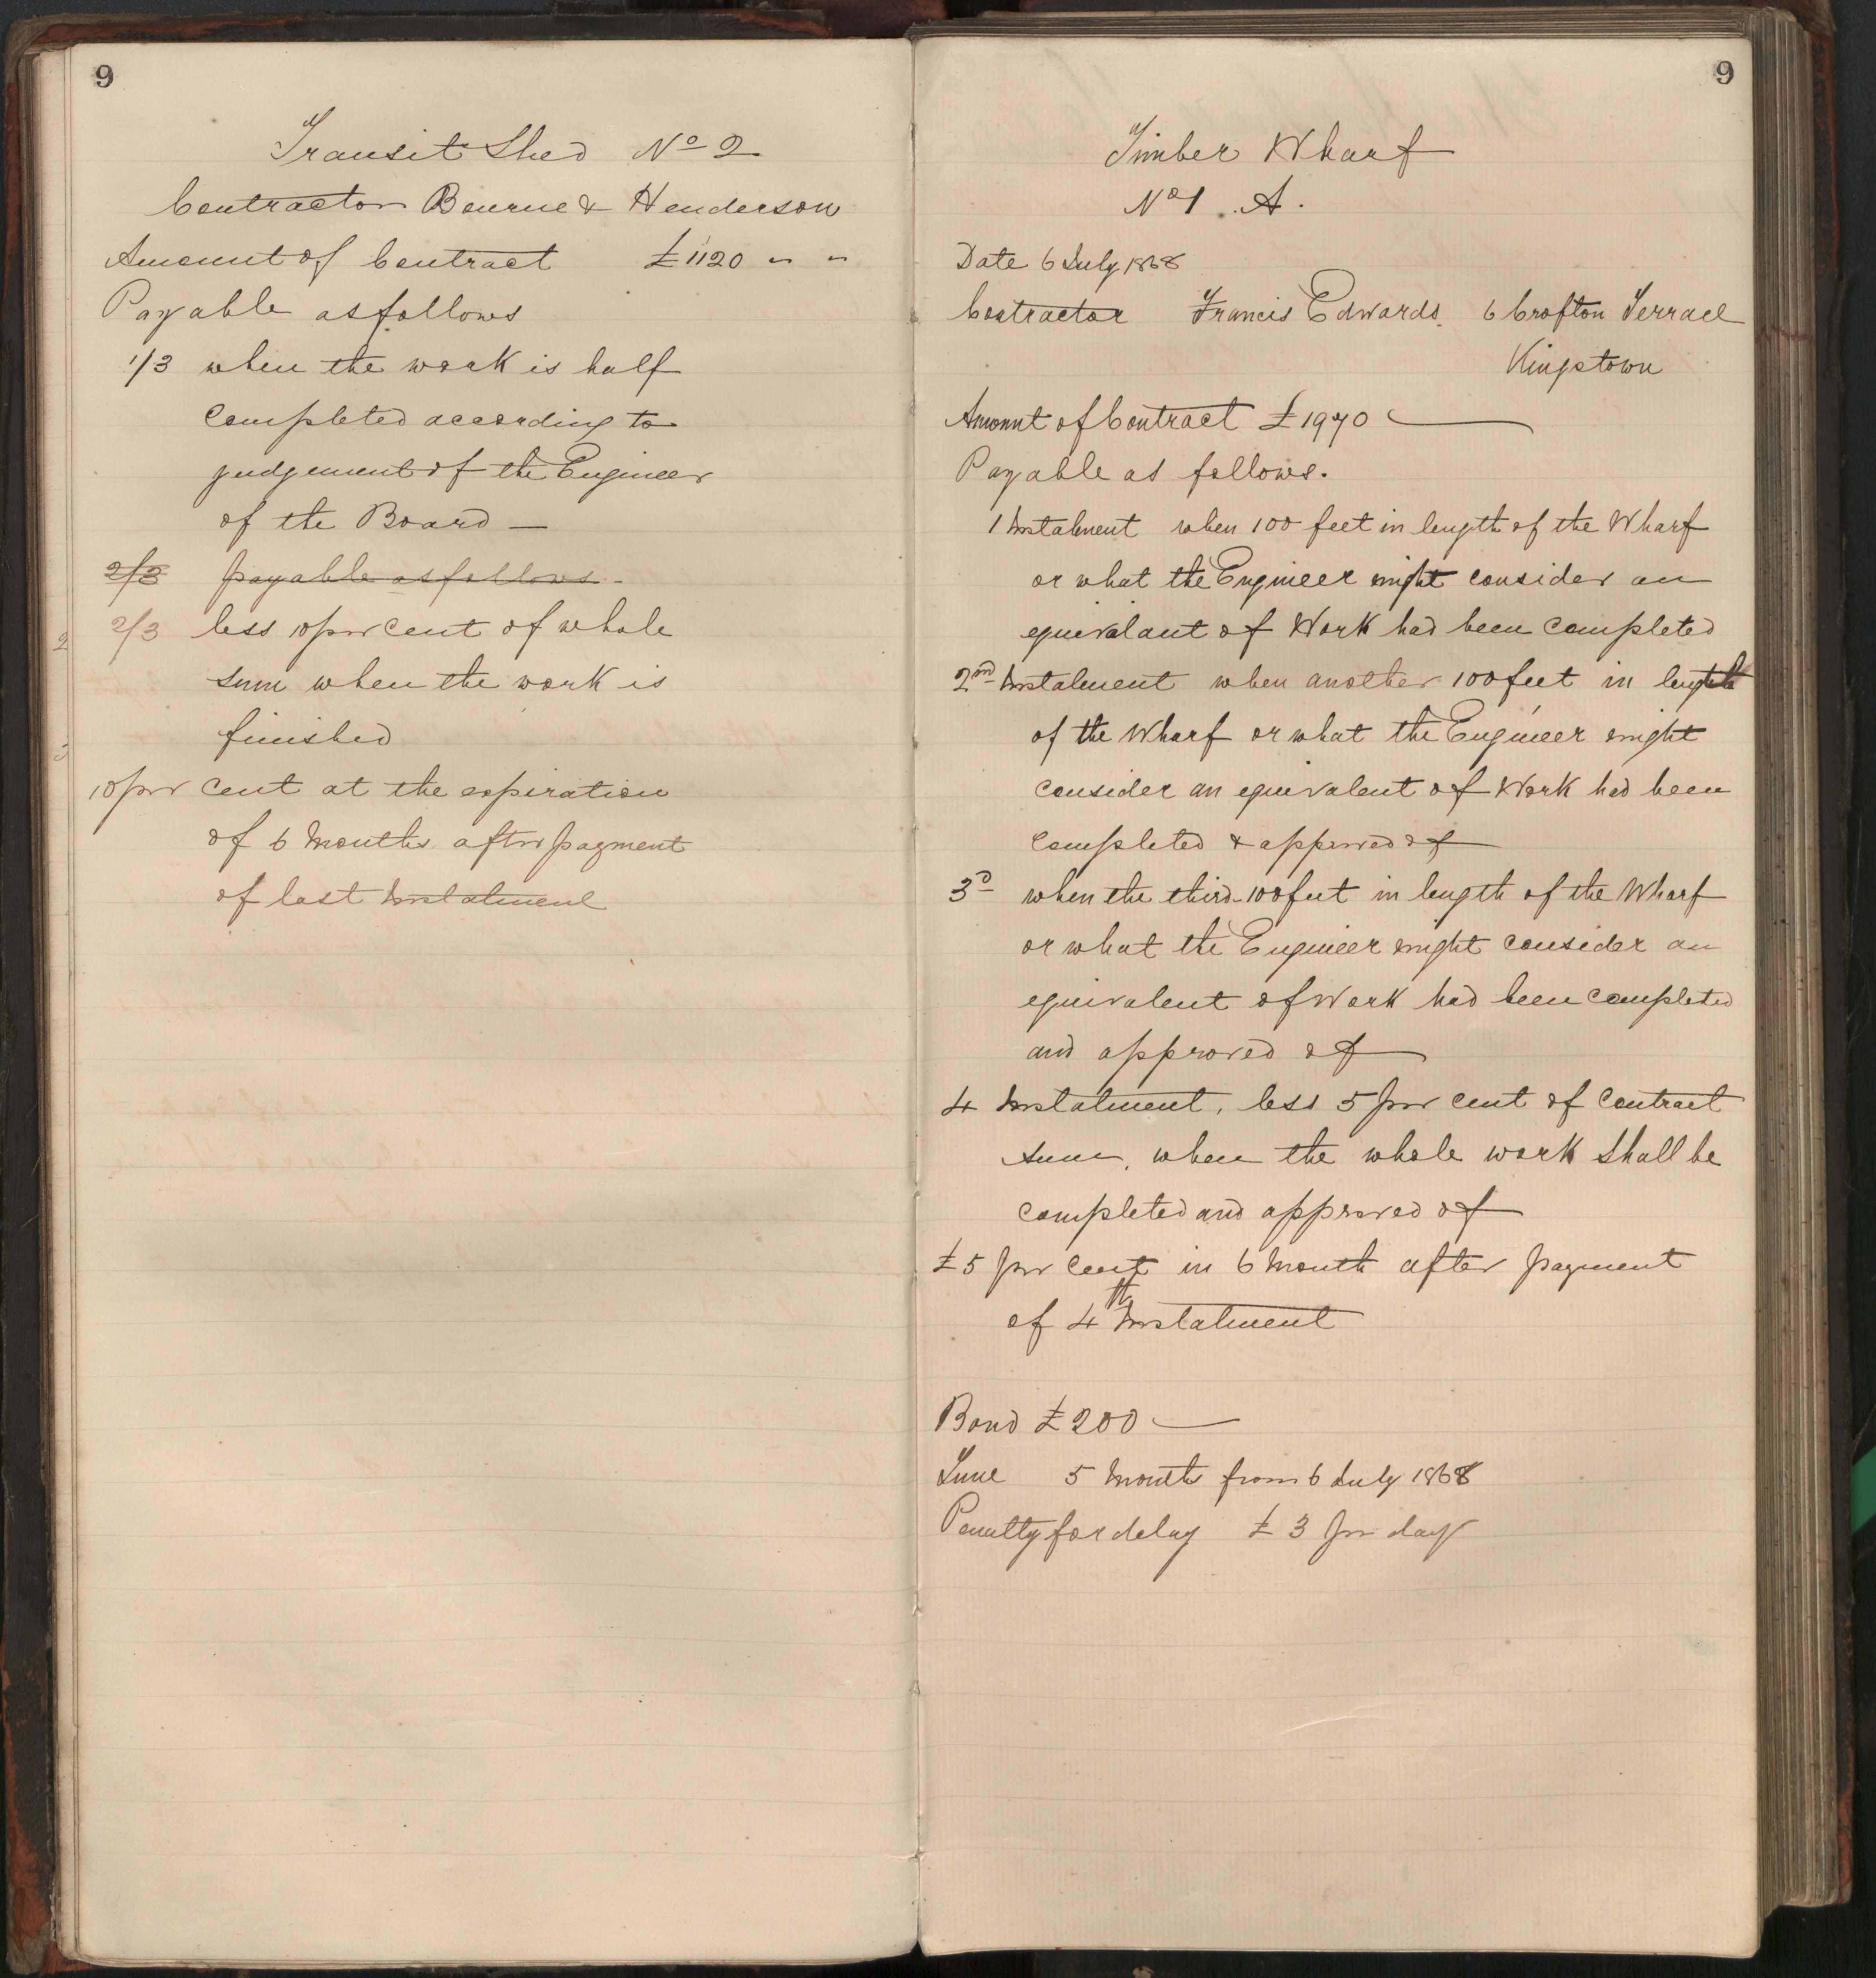 9
Transit Shed No 2
Contractor Bourne & Henderson
Amount of Contract £1120 " "
Payable as follows
1/3 when the work is half
completed according to
judgement of the Engineer
of the Board —
2/3 payable as follows -
2/3 less 10 per cent of whole
sum when the work is
finished
10 per cent at the expiration
of 6 Months after payment
of last Instalment
9
Timber Wharf
No 1 . A .
Date 6 July 1868
Contractor Francis Edwards. 6 Crofton Terrace
Kingstown
Amount of Contract £1970 —
Payable as follows.
1 Instalment when 100 feet in length of the Wharf
or what the Engineer might consider an
equivalant of Work had been completed
2nd Instalment when another 100 feet in length
of the Wharf or what the Engineer might
consider an equivalent of Work had been
completed & approved of
3d when the third 100 feet in length of the Wharf
or what the Engineer might consider an
equivalent of Work had been completed
and approved of
4 Instalment, less 5 per cent of Contract
Sum, when the whole work shall be
completed and approved of
£5 per cent in 6 Month after payment
of 4th Instalment
Bond £200 —
Time 5 Months from 6 July 1868
Penalty for delay £3 per day